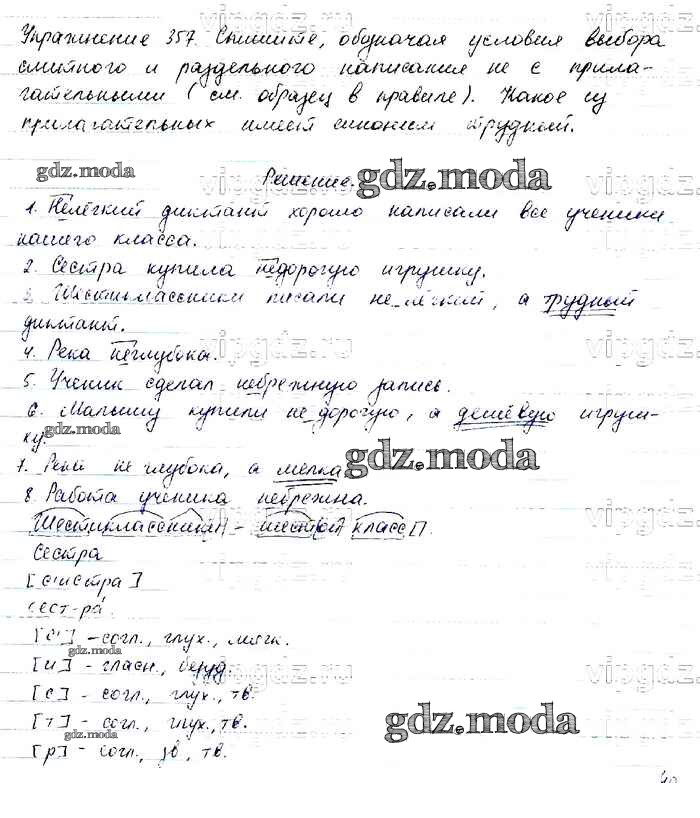 Упражнение 357. Спишите, обозначая условия выбора
слитного и раздельного написания не с прила-
гательными (см. образец в правиле). Какое из
прилагательных имеет синоним трудный.
gdz.moda
Решение.
gdz.moda
1. Нелёгкий диктант хорошо написали все ученики
нашего класса.
2. Сестра купила недорогую игрушку.
3. Шестиклассники писали не лёгкий, а трудный
диктант.
4. Река неглубока.
5. Ученик сделал небрежную запись.
6. Малышу купили не дорогую, а дешёвую игруш-
ку.
gdz.moda
7. Река не глубока, а мелка
gdz.moda
8. Работа ученика небрежна.
Шестиклассники - шестой класс
Сестра
[с'истра]
сест-ра́
[с'] - согл., глух., мягк.
gdz.moda
[и] - гласн., безуд.
[с] - согл., глух., тв.
[т] - согл., глух., тв.
gdz.moda
gdz.moda
[р] - согл., зв, тв.
vipgdz.ru